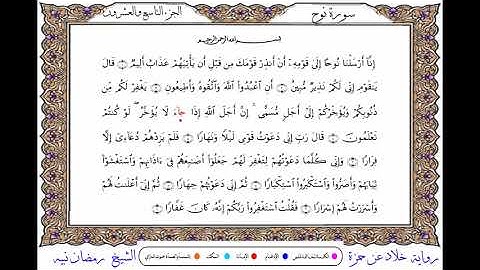 الجزء التاسع والعشرون
سورة نوح
بسم الله الرحمن الرحيم
إِنَّا أَرْسَلْنَا نُوحًا إِلَىٰ قَوْمِهِۦٓ أَنْ أَنذِرْ قَوْمَكَ مِن قَبْلِ أَن يَأْتِيَهُمْ عَذَابٌ أَلِيمٌ ۝ قَالَ
يَـٰقَوْمِ إِنِّى لَكُمْ نَذِيرٌ مُّبِينٌ ۝ أَنِ ٱعْبُدُوا۟ ٱللَّهَ وَٱتَّقُوهُ وَأَطِيعُونِ ۝ يَغْفِرْ لَكُم مِّن
ذُنُوبِكُمْ وَيُؤَخِّرْكُمْ إِلَىٰٓ أَجَلٍ مُّسَمًّى ۚ إِنَّ أَجَلَ ٱللَّهِ إِذَا جَآءَ لَا يُؤَخَّرُ ۖ لَوْ كُنتُمْ
تَعْلَمُونَ ۝ قَالَ رَبِّ إِنِّى دَعَوْتُ قَوْمِى لَيْلًا وَنَهَارًا ۝ فَلَمْ يَزِدْهُمْ دُعَآءِىٓ إِلَّا
فِرَارًا ۝ وَإِنِّى كُلَّمَا دَعَوْتُهُمْ لِتَغْفِرَ لَهُمْ جَعَلُوٓا۟ أَصَـٰبِعَهُمْ فِىٓ ءَاذَانِهِمْ وَٱسْتَغْشَوْا۟
ثِيَابَهُمْ وَأَصَرُّوا۟ وَٱسْتَكْبَرُوا۟ ٱسْتِكْبَارًا ۝ ثُمَّ إِنِّى دَعَوْتُهُمْ جِهَارًا ۝ ثُمَّ إِنِّىٓ أَعْلَنتُ لَهُمْ
وَأَسْرَرْتُ لَهُمْ إِسْرَارًا ۝ فَقُلْتُ ٱسْتَغْفِرُوا۟ رَبَّكُمْ إِنَّهُۥ كَانَ غَفَّارًا ۝
رواية خلاد عن حمزة
الشيخ رمضان نبيه